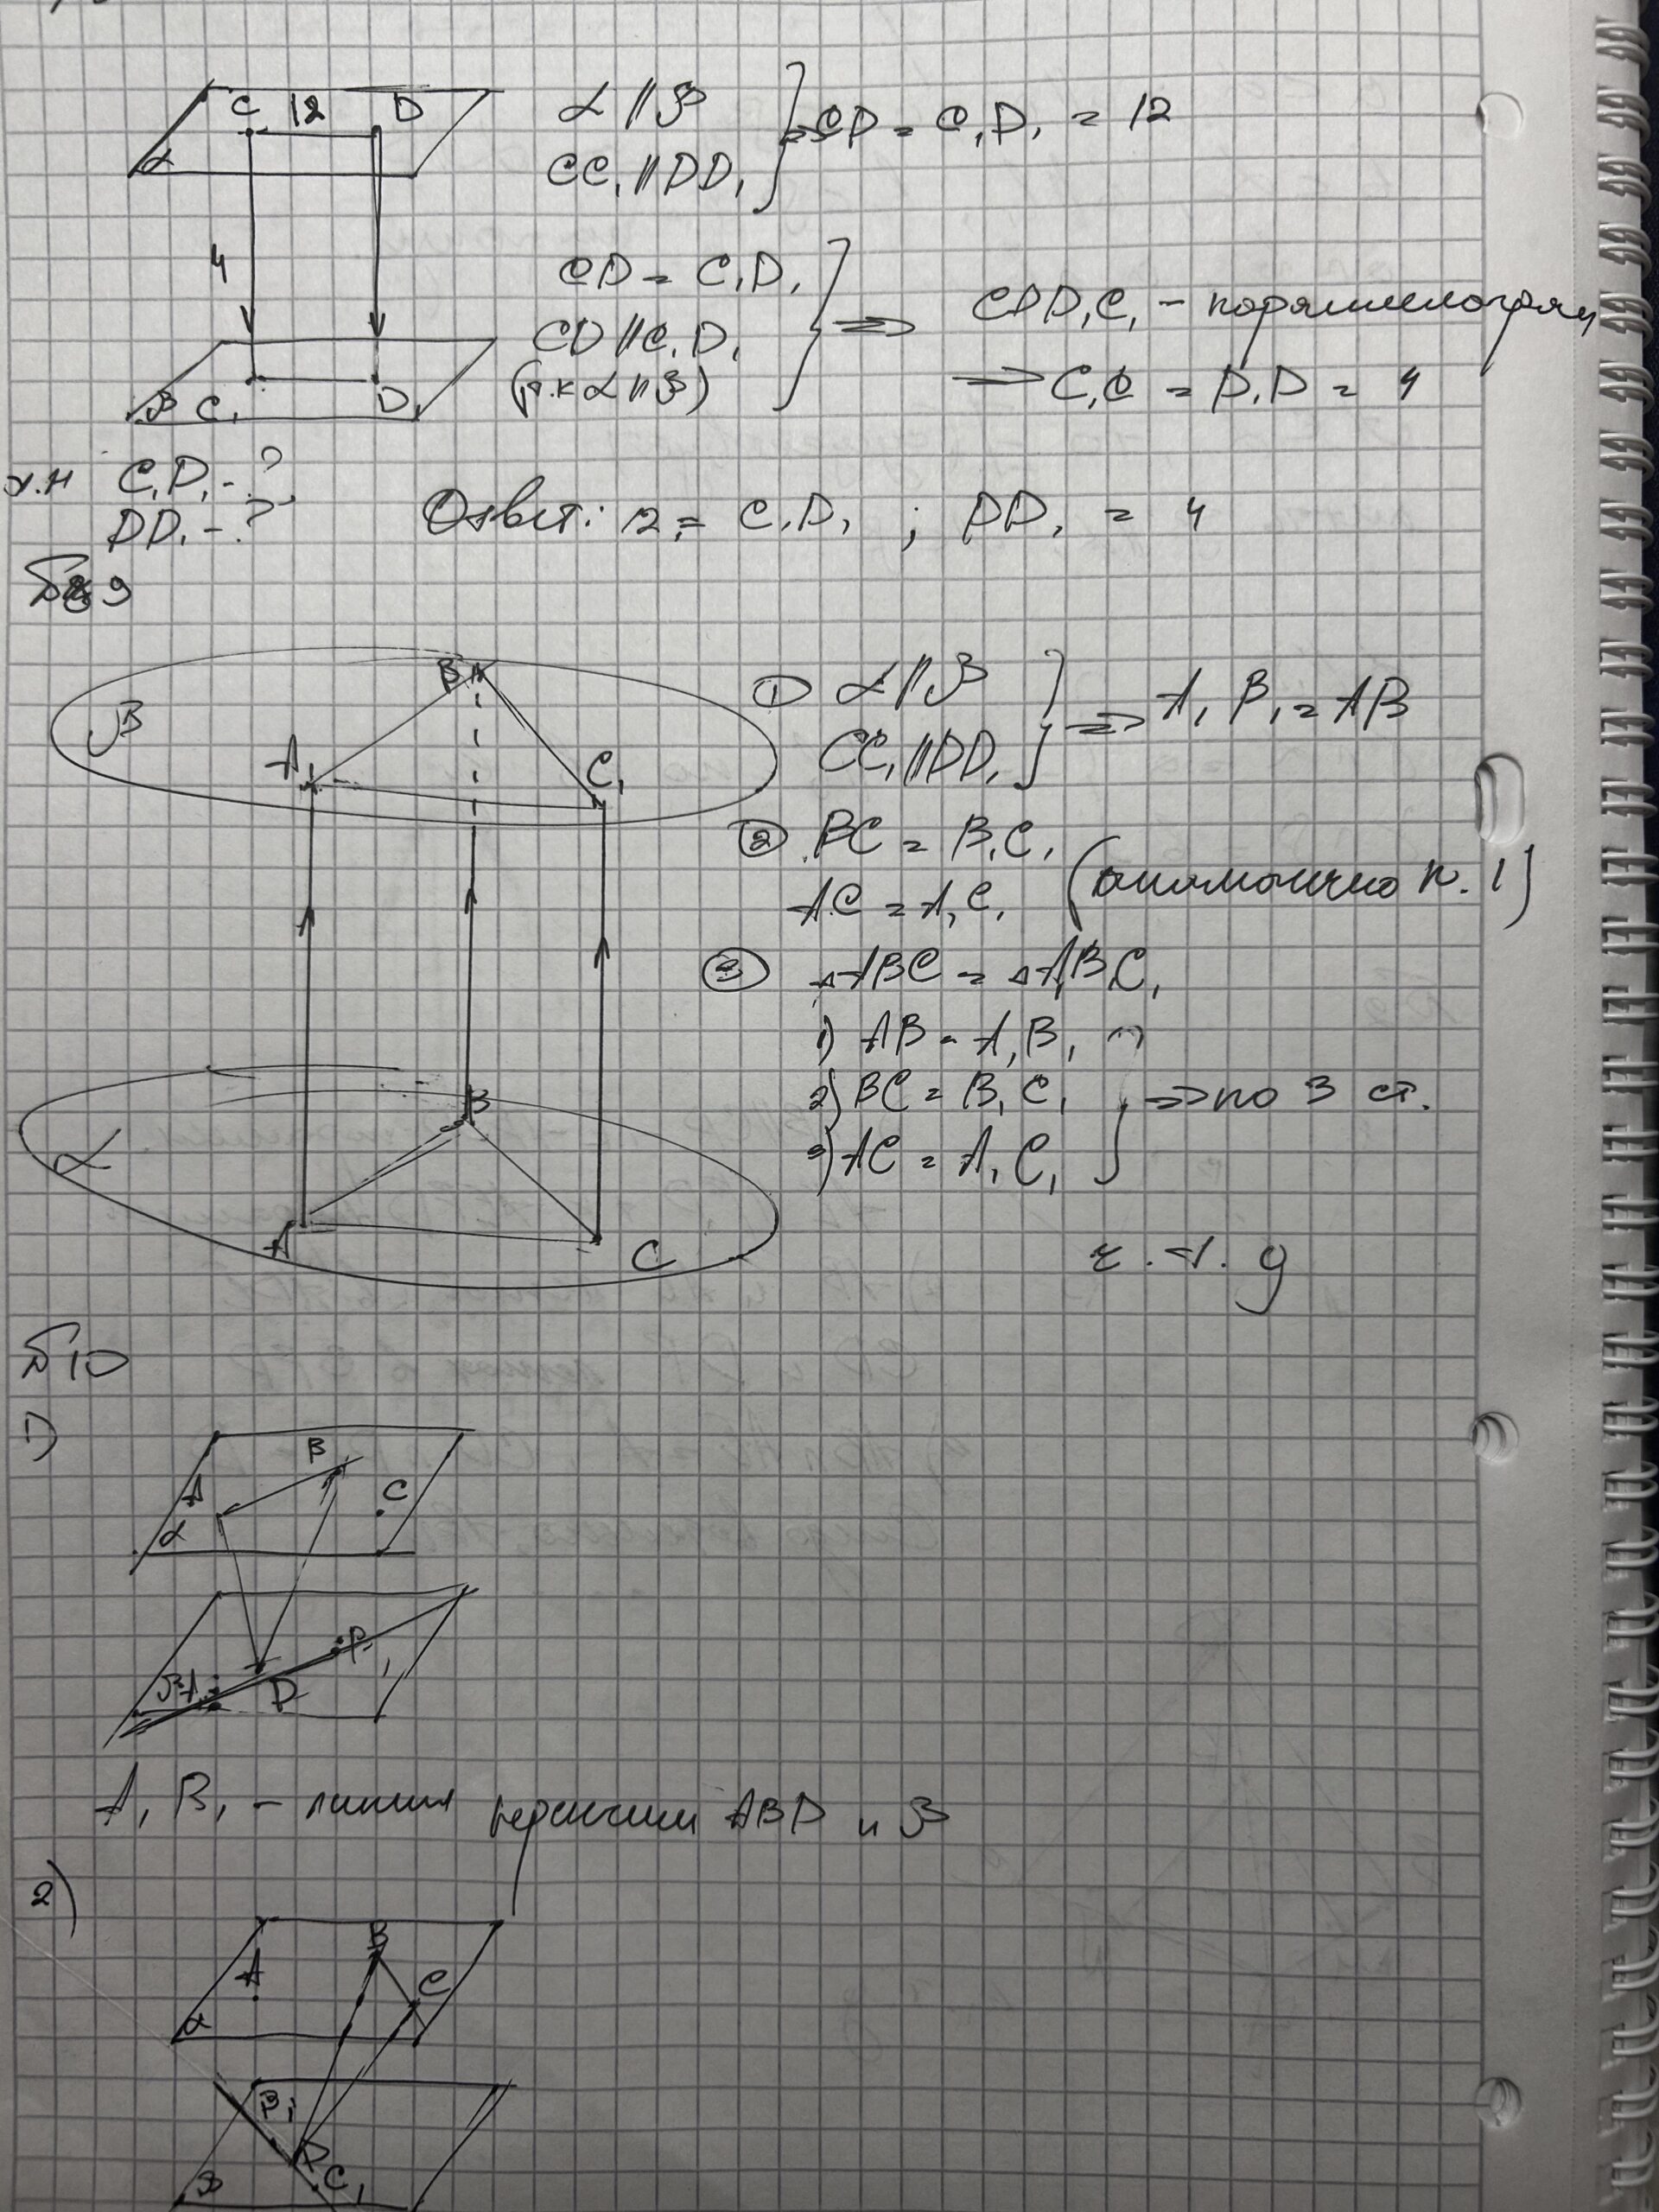 C 12 D
α
4
β C₁ D₁
α ∥ β
CC₁ ∥ DD₁
⇒ CD = C₁D₁ = 12
CD = C₁D₁
CD ∥ C₁D₁
(т.к α ∥ β)
⇒ CDD₁C₁ – параллелограм
⇒ C₁C = D₁D = 4
C₁D₁ - ?
DD₁ - ?
Ответ: 12 = C₁D₁ ; DD₁ = 4
9
B
β
A₁ C₁
B
α
A C
① α ∥ β
CC₁ ∥ DD₁
⇒ A₁B₁ = AB
② BC = B₁C₁
AC = A₁C₁ (аналогично п. 1)
③ △ABC = △A₁BC₁
1) AB = A₁B₁
2) BC = B₁C₁
3) AC = A₁C₁
⇒ по 3 ст.
ч.т.д
10
1)
B
A C
α
β A₁ D
A₁B₁ – линия перечсии ABD и β
2)
B
A C
α
B₁
D
β C₁